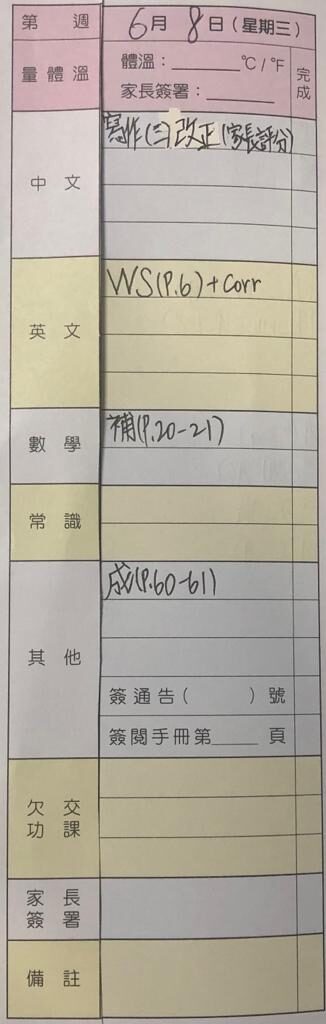 第 週 6月8日(星期三)
量體溫 體溫：______ °C/°F 完成
家長簽署：______
中文 寫作(三)改正(家長評分)
英文 WS(P.6)+Corr
數學 補(P.20-21)
常識
其他 成(P.60-61)
簽通告( )號
簽閱手冊第____頁
欠交功課
家長簽署
備註